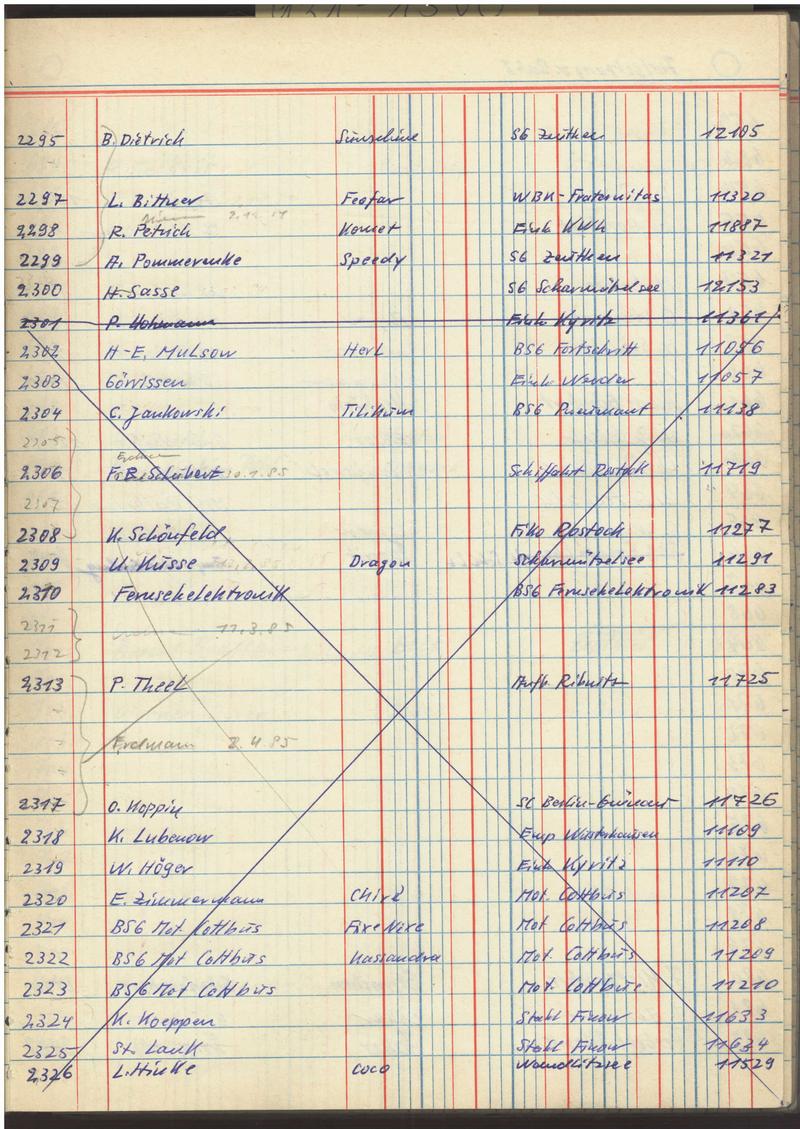 2295 B. Dietrich Sunshine SG Zeuthen 12105
2297 L. Bittner Feofar WBK-Fraternitas 11320
2.11.84
2298 R. Petrich Komet Einh. KWh 11887
2299 A. Pommerenke Speedy SG Zeuthen 11321
2300 H. Sasse SG Scharmützelsee 12153
2301 P. Hohmann Einh. Kyritz 11361
2302 H-E. Mulsow Herl BSG Fortschritt 11056
2303 Görrissen Einh. Werder 11057
2304 C. Jankowski Tilikum BSG Pneumant 11138
2305
2306 Fr. B. Schubert 30.1.85 Schiffahrt Rostock 11719
2307
2308 K. Schönfeld Fiko Rostock 11277
2309 U. Küsse Dragon Scharmützelsee 11291
2310 Fernsehelektronik BSG Fernsehelektronik 11283
2311 11.3.85
2312
2313 P. Theel Aufb. Ribnitz 11725
Erdmann 2.4.85
2317 O. Koppin SC Berlin-Grünau 11726
2318 K. Lubenow Emp Wusterhausen 11109
2319 W. Höger Einh. Kyritz 11110
2320 E. Zimmermann Mot. Cottbus 11207
2321 BSG Mot Cottbus Fixe Nixe Mot Cottbus 11208
2322 BSG Mot Cottbus Kassandra Mot. Cottbus 11209
2323 BSG Mot Cottbus Mot. Cottbus 11210
2324 K. Koeppen Stahl Finow 11633
2325 St. Lauk Stahl Finow 11634
2326 L. Hinke Coco Wandlitzsee 11529